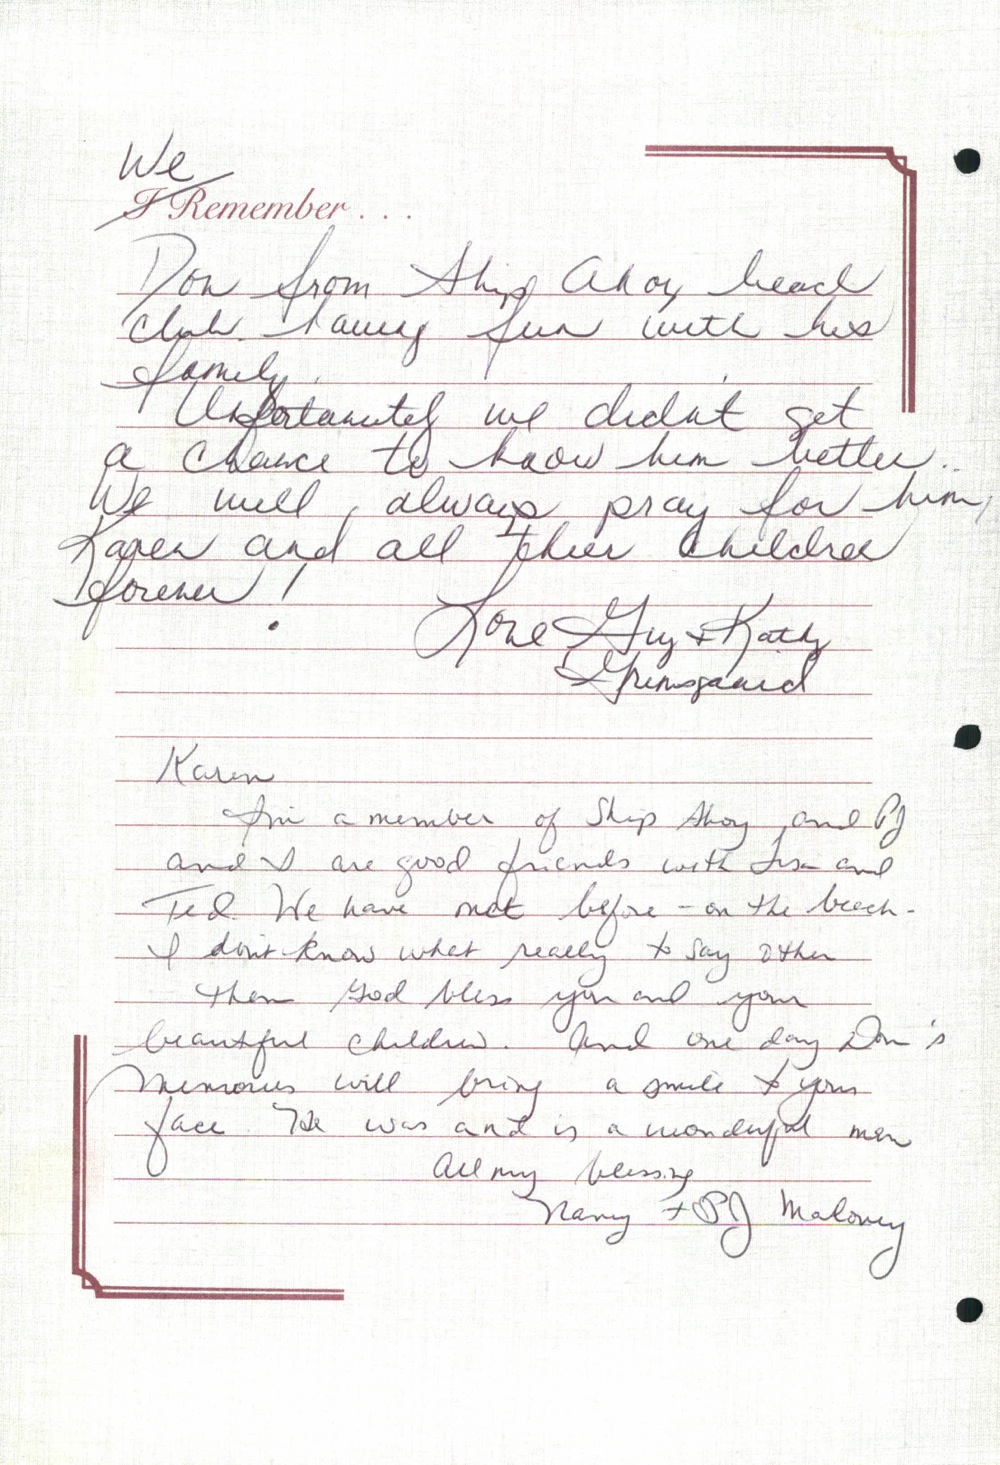 We
I Remember . . .
Don from Ship Ahoy beach
club having fun with his
family.
Unfortunately we didn't get
a chance to know him better..
We will always pray for him,
Karen and all their children
forever!
Love Guy & Kathy
Karen
I'm a member of Ship Ahoy and PJ
and I are good friends with Lisa and
Ted. We have met before - on the beach.
I don't know what really to say other
then God bless you and your
beautiful children. And one day Don's
Memories will bring a smile to your
face. He was and is a wonderful man
All my blessing
Nancy + PJ Maloney